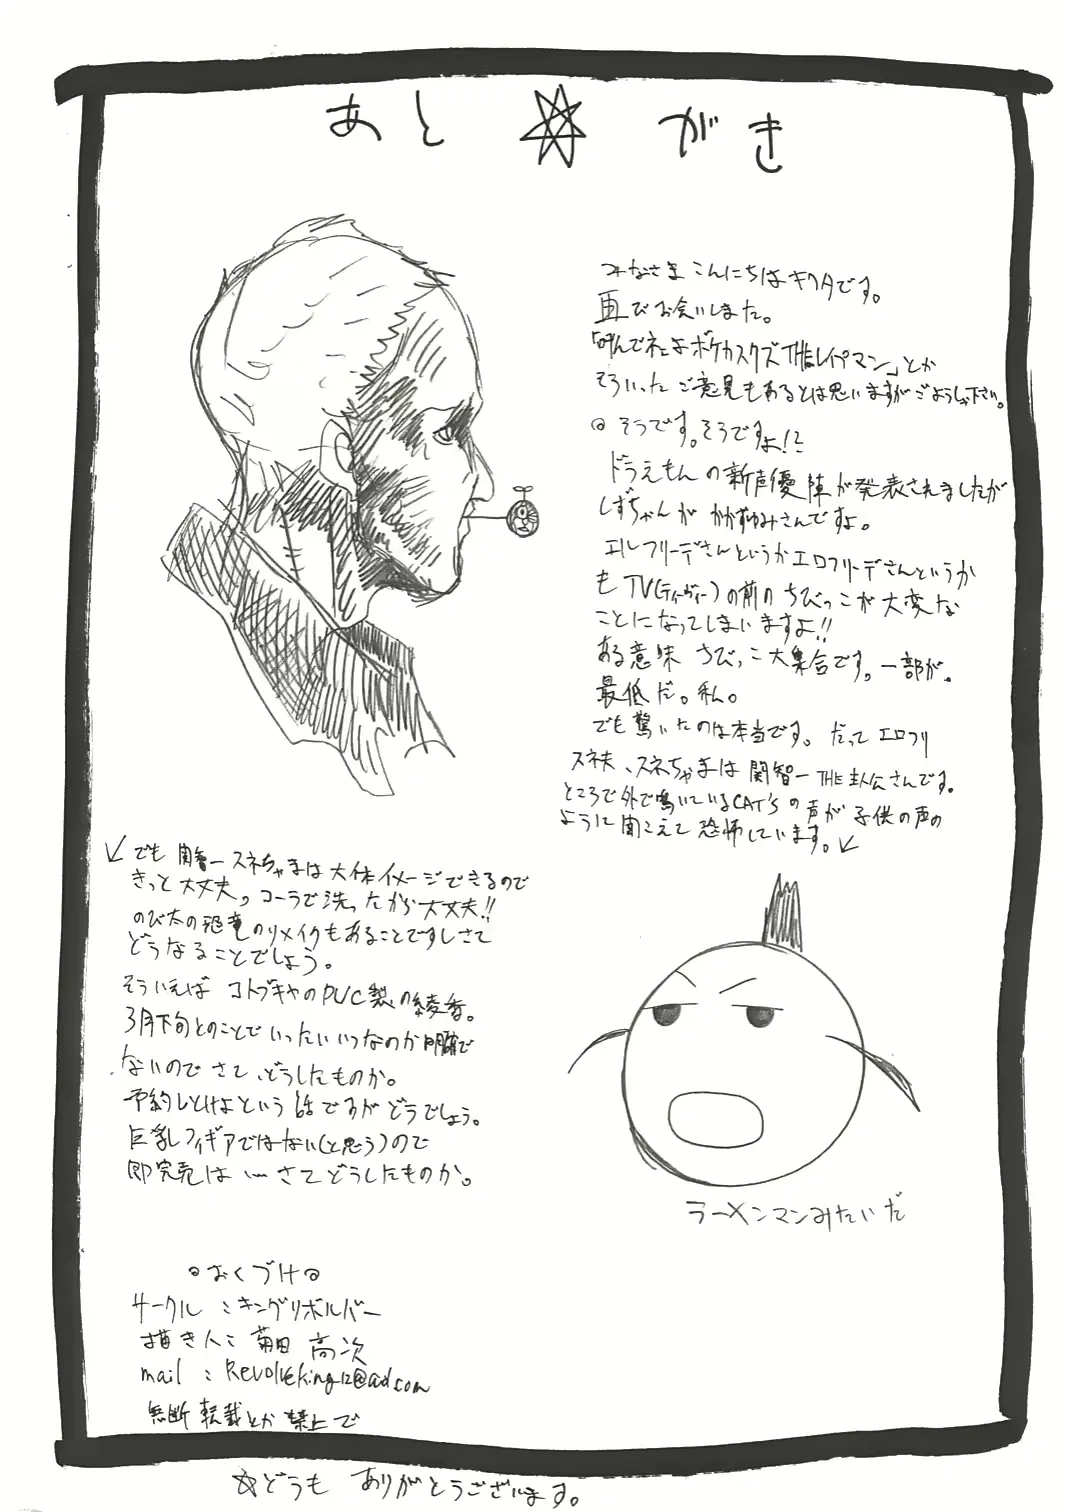 あと☆がき
みなさまこんにちはキクタです。
再びお会いしました。
「呼んでネェよボケカスクズTHEレイプマン」とか
そういったご意見もあるとは思いますがごようしゃ下さい。
◎そうです。そうですよ!!
ドラえもんの新声優陣が発表されましたが
しずちゃんがかかずゆみさんですよ。
エルフリーデさんというかエロフリーデさんというか
もTV(ティーヴィー)の前のちびっこが大変な
ことになってしまいますよ!!
ある意味ちびっこ大集合です。一部が。
最低だ。私。
でも驚いたのは本当です。だってエロフリ
スネ夫、スネちゃまは関智一THE主人公さんです。
ところで外で鳴いているCAT'Sの声が子供の声の
ように聞こえて恐怖しています。↙
↙でも関智一スネちゃまは大体イメージできるので
きっと大丈夫。コーラで洗ったから大丈夫!!
のび太の恐竜のリメイクもあることですしさて
どうなることでしょう。
そういえばコトブキヤのPVC製の綾香。
3月下旬とのことでいったいいつなのか明確で
ないのでさて、どうしたものか。
予約しとけよという話ですがどうでしょう。
巨乳フィギアではない(と思う)ので
即完売は…さてどうしたものか。
ラーメンマンみたいだ
◎おくづけ◎
サークル:キングリボルバー
描き人:菊田 高次
mail:Revolveking12@aol.com
無断転載とか禁止で
☆どうもありがとうございます。